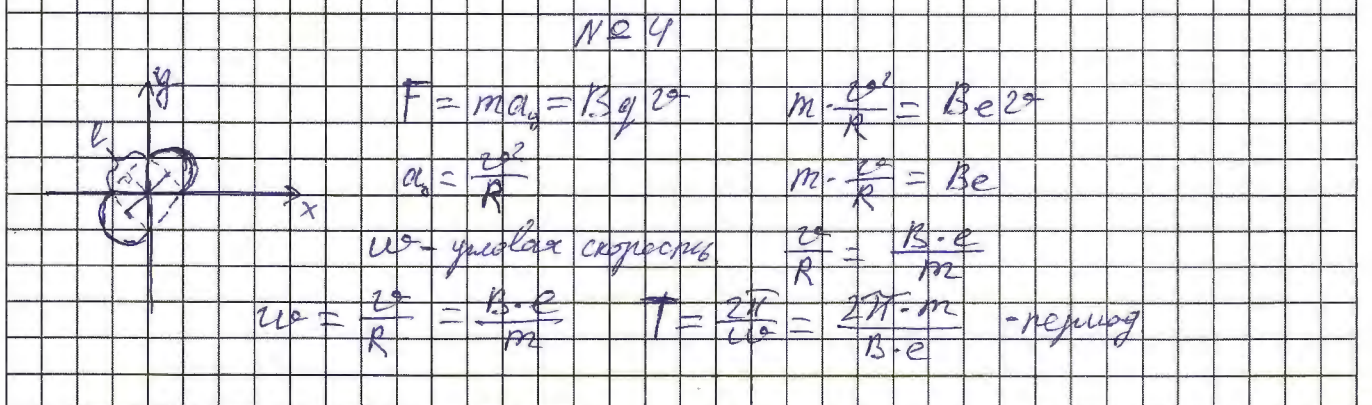 № 4
y
F = ma_y = Bqv
m · v²/R = Bev
l
a_y = v²/R
m · v/R = Be
x
ω - угловая скорость
v/R = B·e/m
ω = v/R = B·e/m
T = 2π/ω = 2π·m/B·e - период